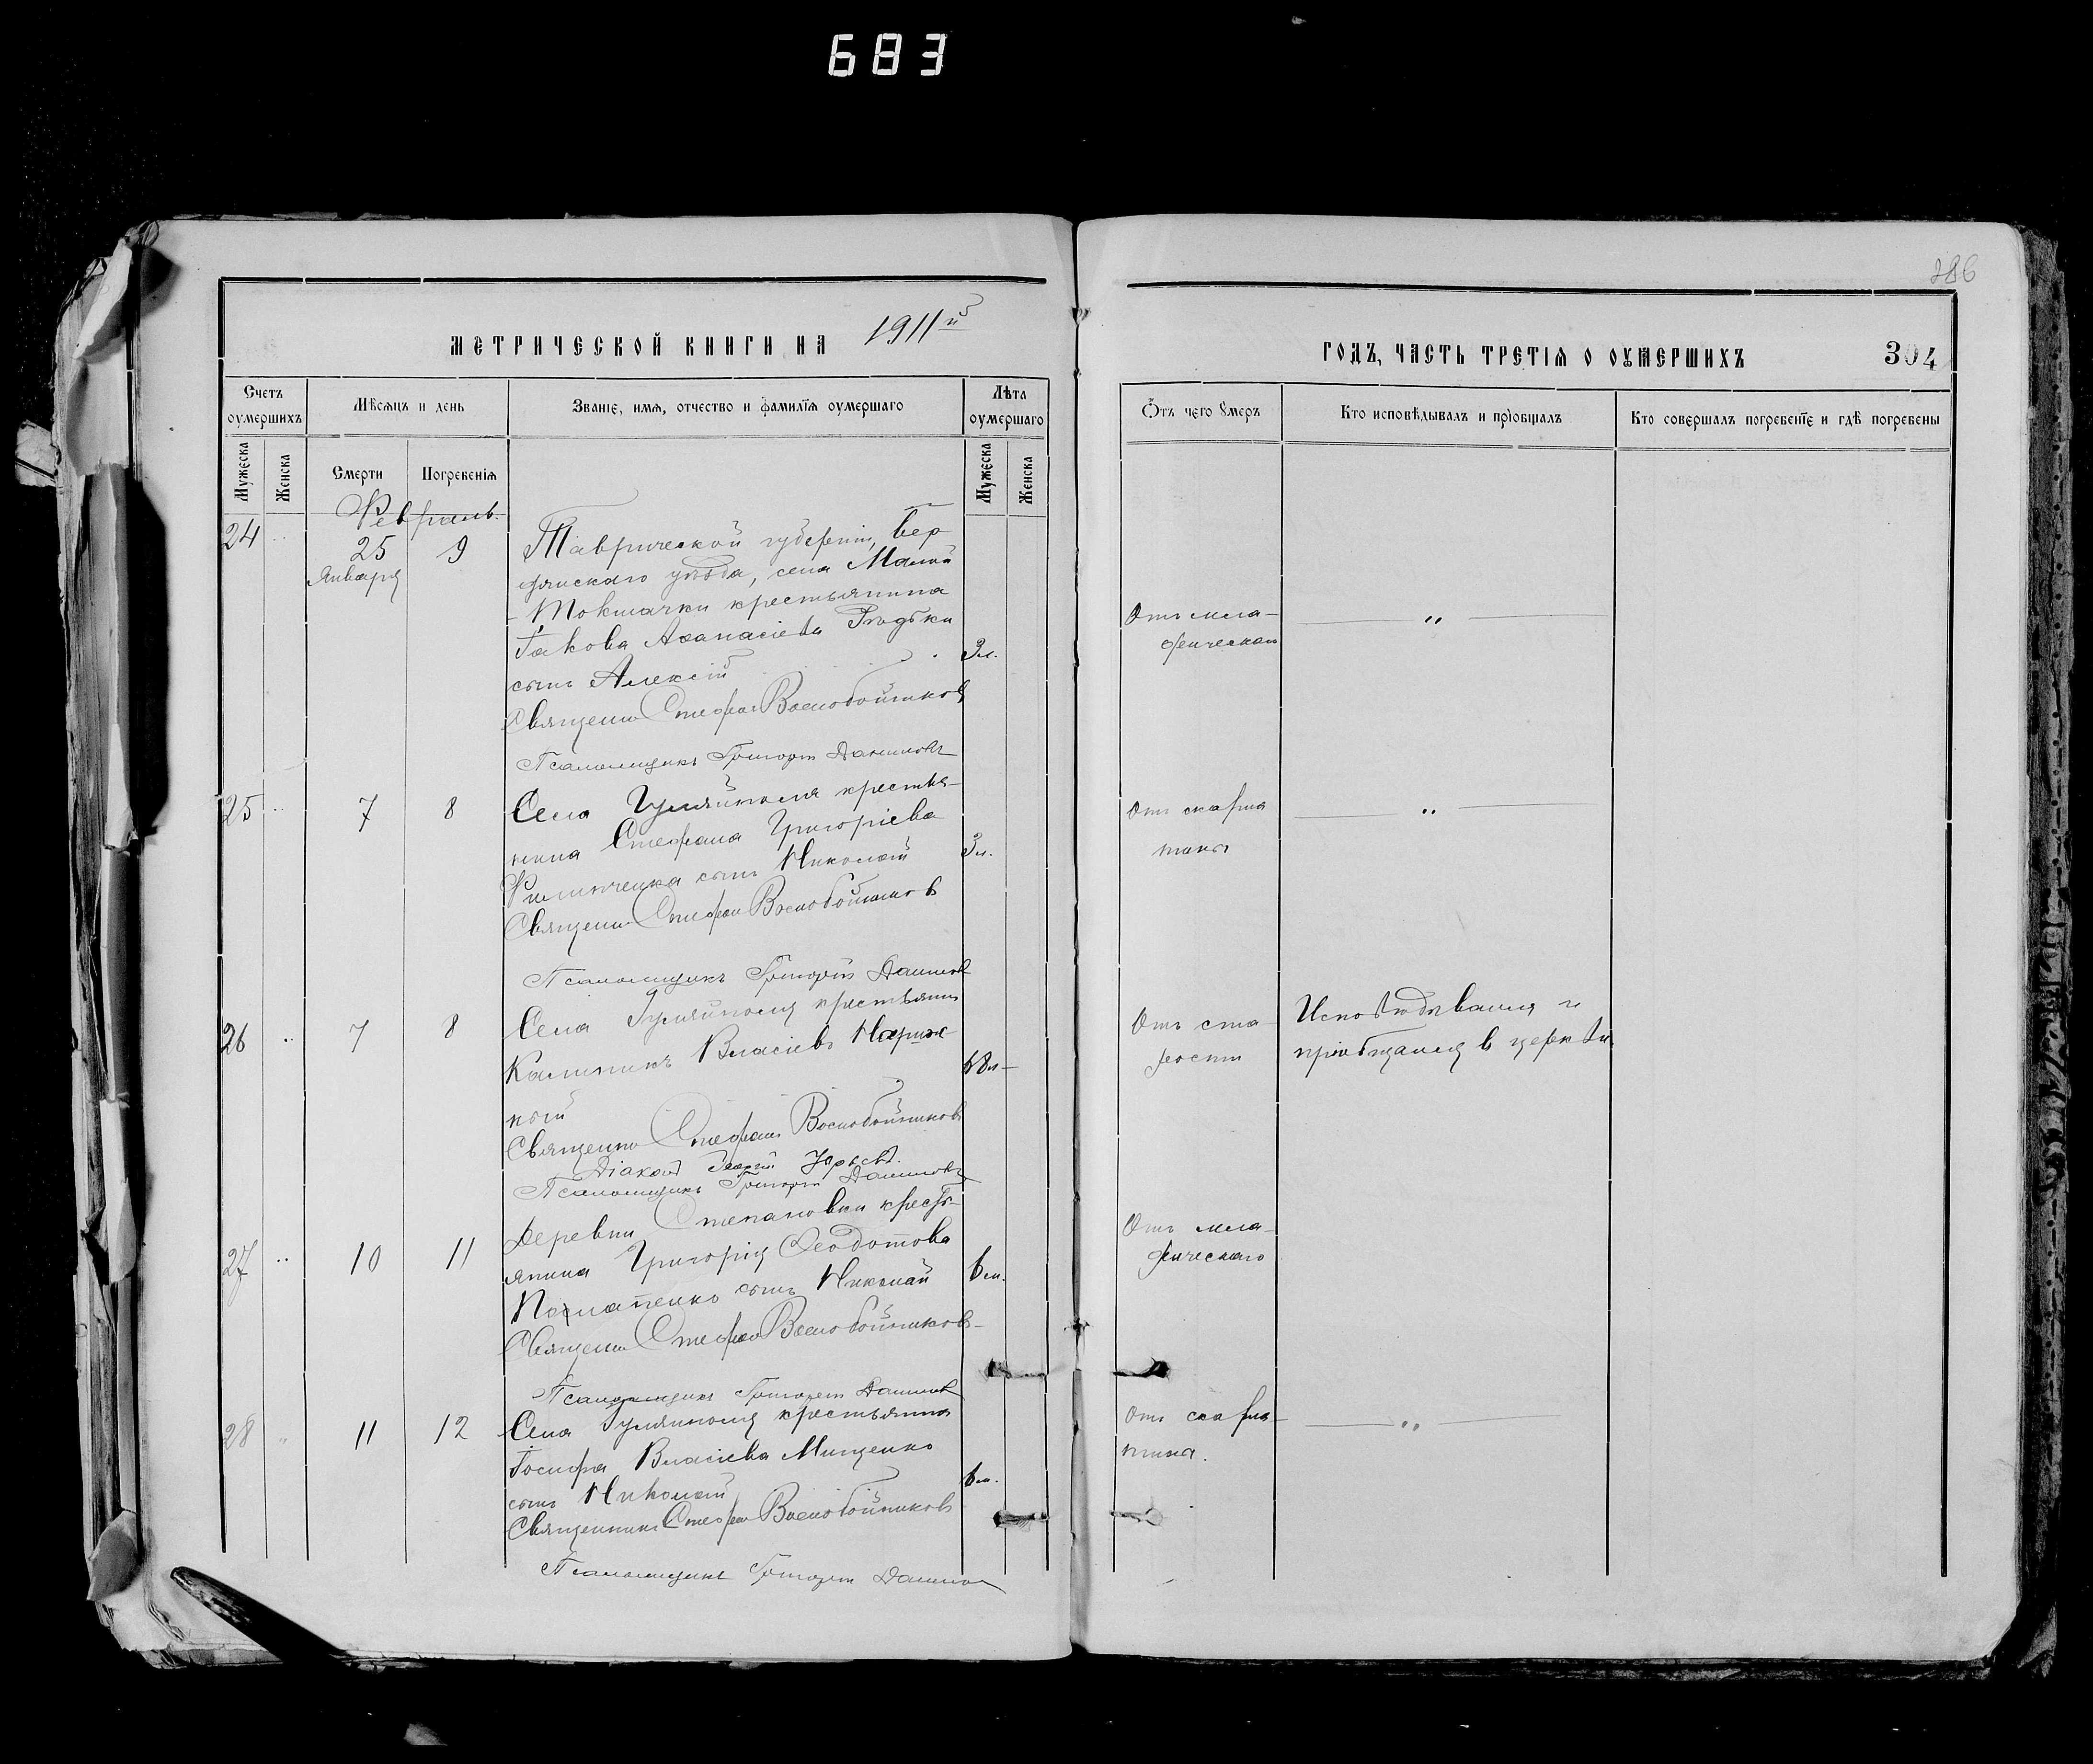 683
386
МЕТРИЧЕСКОЙ КНИГИ НА 1911й
ГОДЪ, ЧАСТЬ ТРЕТІѦ О ОУМЕРШИХЪ 304
Счетъ оумершихъ
Мѣсѧцъ и день
Званіе, имѧ, отчество и фамиліѧ оумершаго
Лѣта оумершаго
Ѿтъ чего ᲂумеръ
Кто исповѣдывалъ и пріобщалъ
Кто совершалъ погребеніе и гдѣ погребены
Мужеска
Женска
Смерти
Погребеніѧ
Мужеска
Женска
Февраль.
24 " 25 Января 9
Таврической губерніи, Бер
дянскаго уѣзда, села Малой
-Токмачки крестьянина
Іакова Аѳанасіева Рѣдьки
сынъ Алексій
3л.
Отъ мла-
денческаго
"
Священн Стефан Воснобойников
Псаломщикъ Григорій Даниловъ
25 " 7 8
Села Гуляйполя крестья-
нина Стефана Григоріева
Филипченка сынъ Николай
3л.
Отъ скарла
тины
"
Священн Стефан Воснобойников
Псаломщикъ Григорій Данилов
26 " 7 8
Села Гуляйполя крестьянин
Калиникъ Власіевъ Нариж
ный
68л-
Отъ ста
рости
Исповѣдывался и
пріобщался в церкви
Священно Стефан Воснобойников
Діакон Георгій Юрьев.
Псаломщикъ Григорій Даниловъ
27 " 10 11
Деревни Степановки кресть-
янина Григорія Ѳеодотова
сынъ Николай
6м.
Отъ мла-
денческаго
Священн Стефан Воснобойников
Псаломщикъ Григорій Данилов
28 " 11 12
Села Гуляйполя крестьянина
Іосифа Власіева Мищенко
сынъ Николай
6м.
Отъ скарла-
тина.
"
Священникъ Стефан Воснобойников
Псаломщикъ Григорій Данилов